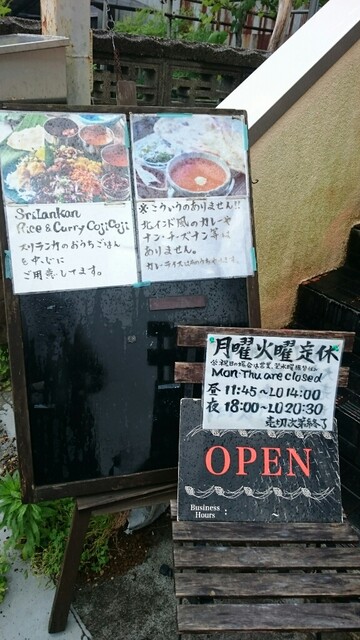 SriLankan
Rice & Curry CojiCoji
スリランカのおうちごはん
を中心に
ご用意してます。
※こういうのありません!!
北インド風のカレーや
ナン・チーズナン等は
ありません。
カレーライス
月曜火曜定休
Mon·Thu are closed
昼 11:45~LO14:00
夜 18:00~LO20:30
売切次第終了
OPEN
Business
Hours :
~